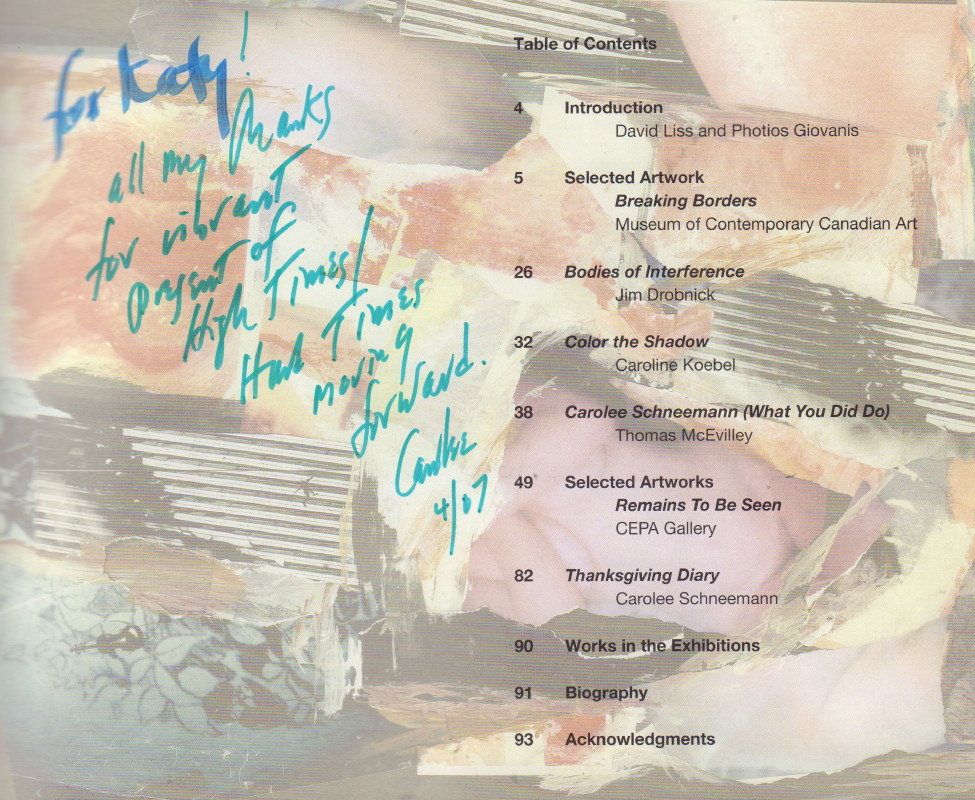 for Katy!
all my thanks
for vibrant
present of
High Times/
Hard Times
moving
forward.
Carolee
4/07
Table of Contents
4 Introduction
David Liss and Photios Giovanis
5 Selected Artwork
Breaking Borders
Museum of Contemporary Canadian Art
26 Bodies of Interference
Jim Drobnick
32 Color the Shadow
Caroline Koebel
38 Carolee Schneemann (What You Did Do)
Thomas McEvilley
49 Selected Artworks
Remains To Be Seen
CEPA Gallery
82 Thanksgiving Diary
Carolee Schneemann
90 Works in the Exhibitions
91 Biography
93 Acknowledgments